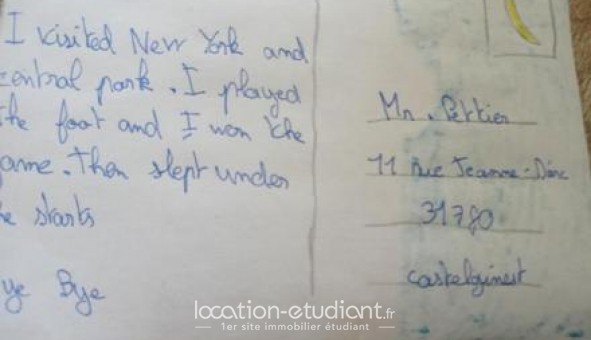 I visited New York and
central park. I played
the foot and I won the
game. then slept under
he starts
ye Bye
Mr. Pettier
11 rue Jeanne-D'arc
31780
castelginest
location-etudiant.fr
1er site immobilier étudiant